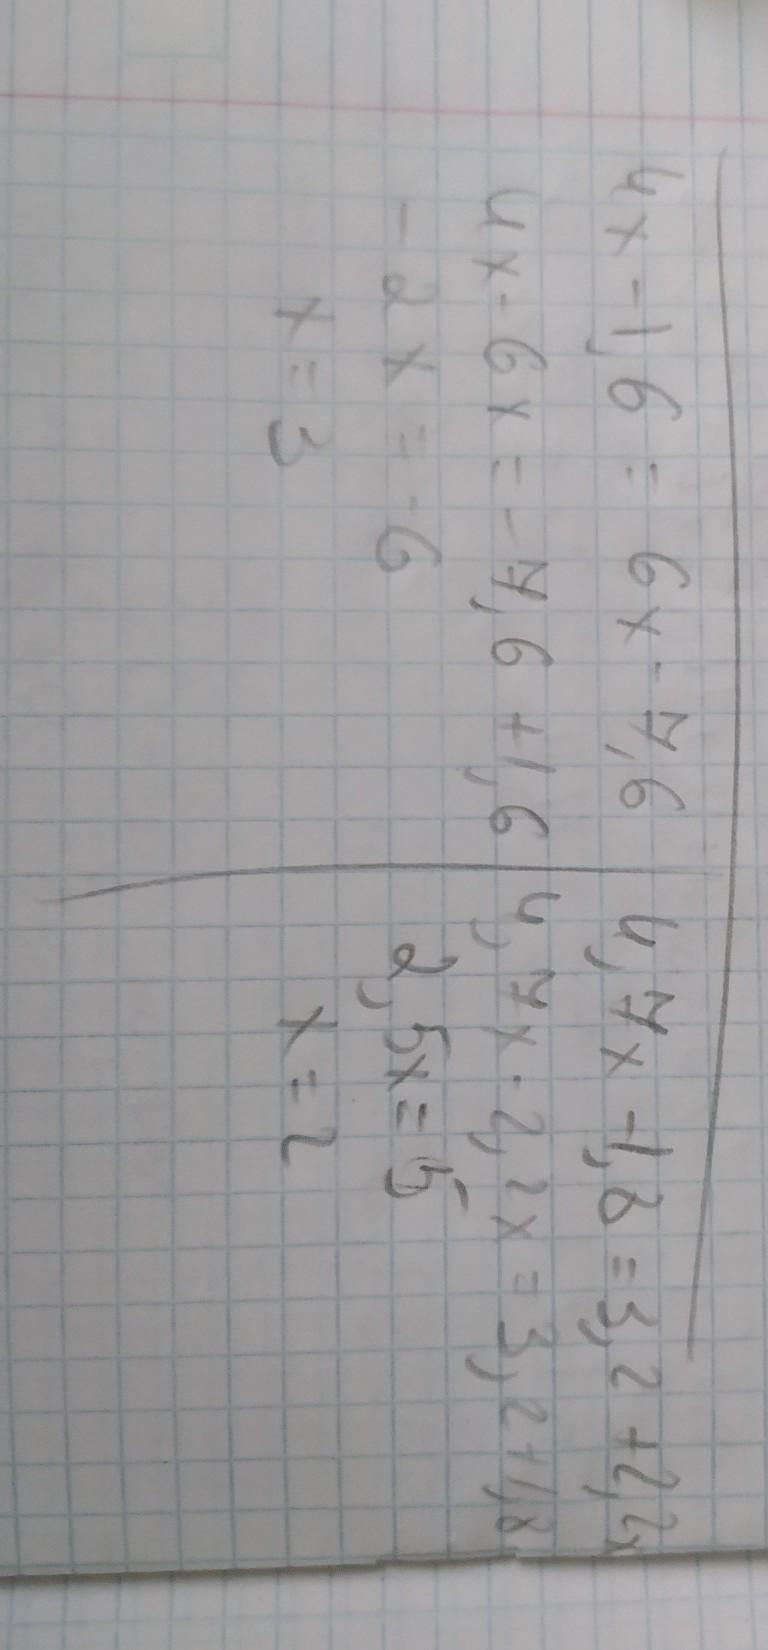 4x-1,6 = 6x-7,6
4x-6x=-7,6+1,6
-2x=-6
x=3
4,7x-1,8=3,2+2,2x
4,7x-2,2x=3,2+1,8
2,5x=5
x=2